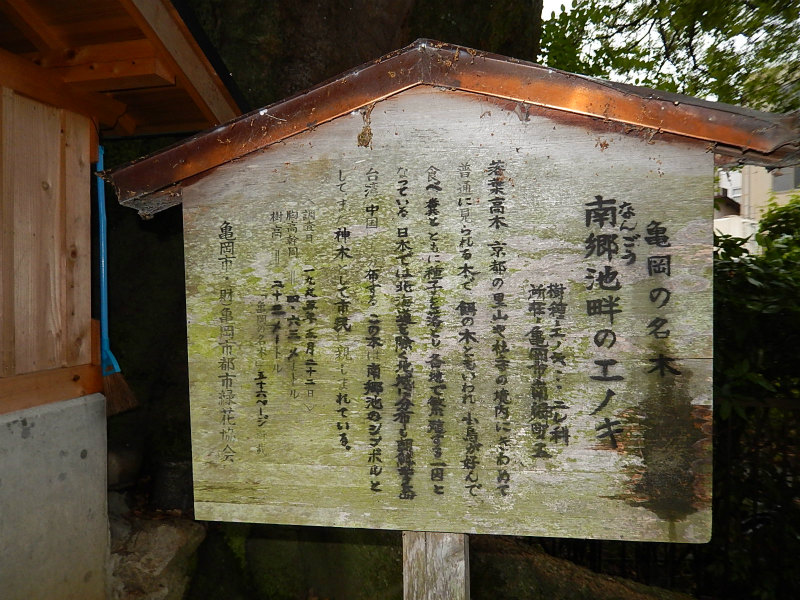 亀岡の名木
南郷池畔のエノキ
なんごう
樹種 エノキ ニレ科
所在 亀岡市南郷町
落葉高木 京都の里山や社寺の境内にきわめて
普通に見られる木で 餌の木ともいわれ 小鳥が好んで
食べ 糞とともに種子を落とし 各地で繁殖する一因と
なっている 日本では北海道を除く地域に分布し 朝鮮半島
台湾 中国 布する この木は南郷池のシンボルと
してまた神木として市民に親しまれている。
調査日 二十二日
胸高幹囲 四・六三メートル
樹高 二十二メートル
亀岡の名木 五十六ページ
亀岡市 財 亀岡市都市緑花協会